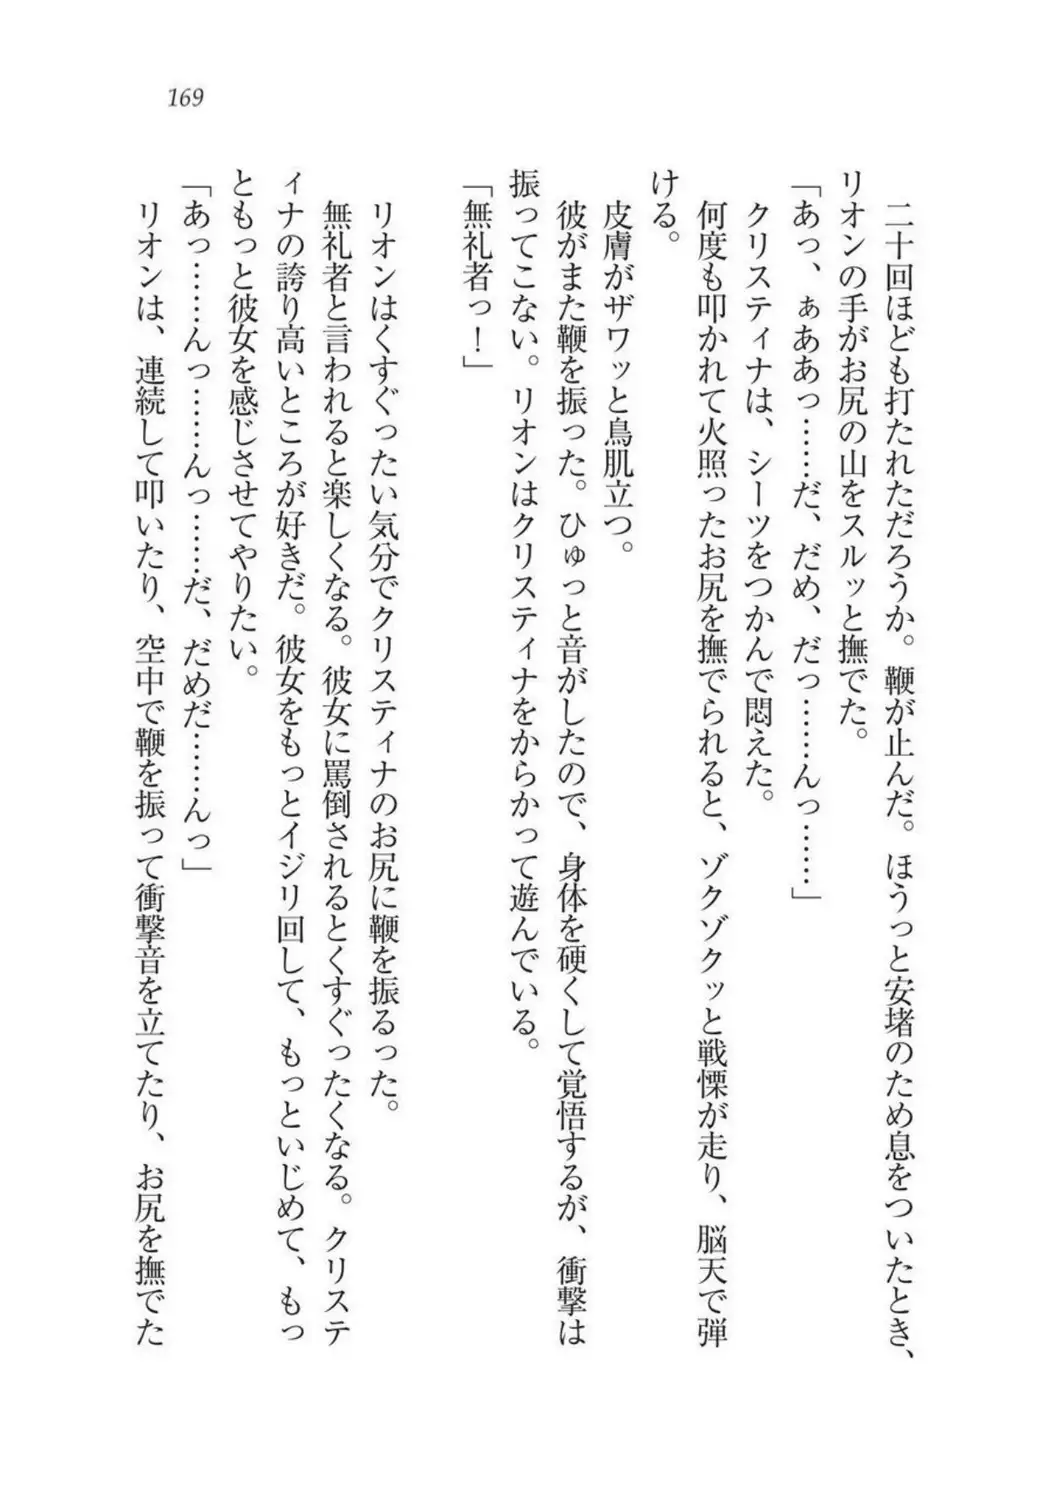 169
二十回ほども打たれただろうか。鞭が止んだ。ほうっと安堵のため息をついたとき、
リオンの手がお尻の山をスルッと撫でた。
「あっ、ぁああっ……だ、だめ、だっ………んっ……」
クリスティナは、シーツをつかんで悶えた。
何度も叩かれて火照ったお尻を撫でられると、ゾクゾクッと戦慄が走り、脳天で弾
ける。
皮膚がザワッと鳥肌立つ。
彼がまた鞭を振った。ひゅっと音がしたので、身体を硬くして覚悟するが、衝撃は
振ってこない。リオンはクリスティナをからかって遊んでいる。
「無礼者っ！」
リオンはくすぐったい気分でクリスティナのお尻に鞭を振るった。
無礼者と言われると楽しくなる。彼女に罵倒されるとくすぐったくなる。クリステ
ィナの誇り高いところが好きだ。彼女をもっとイジリ回して、もっといじめて、もっ
ともっと彼女を感じさせてやりたい。
「あっ………んっ………んっ………だ、だめだ………んっ」
リオンは、連続して叩いたり、空中で鞭を振って衝撃音を立てたり、お尻を撫でた